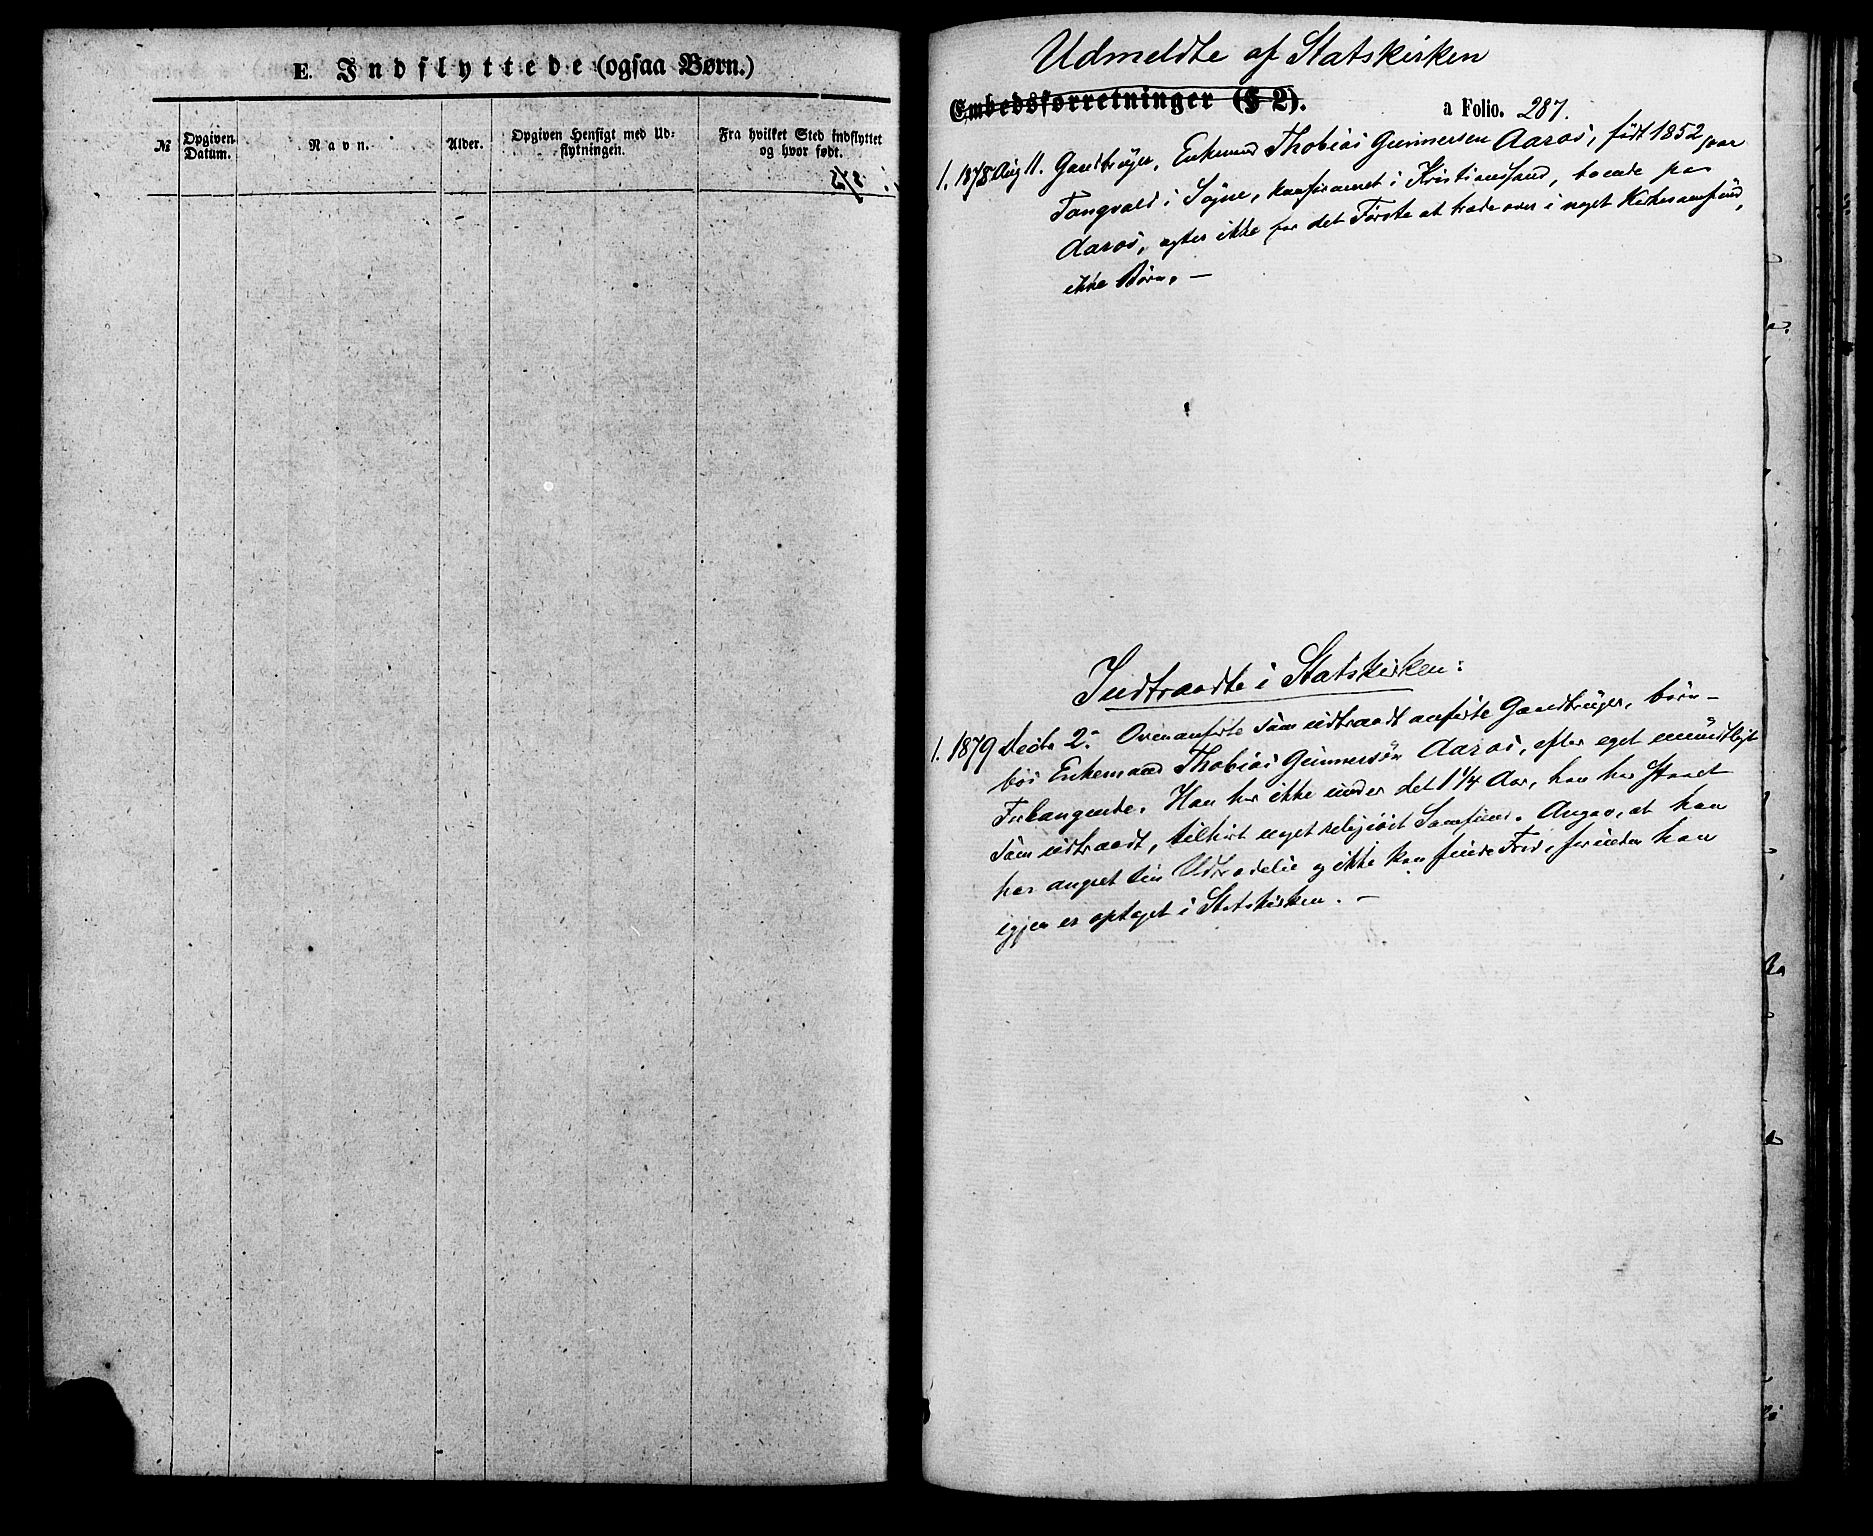 E. Indflyttede (ogsaa Børn.)
№
Opgiven Datum.
Navn.
Alder.
Opgiven Hensigt med Ud-
flytningen.
Fra hvilket Sted indflyttet
og hvor født.
Udmeldte af Statskirken
Embedsforretninger (§ 2).
a Folio. 287.
1. 1878 Aug 11. Gaardbruger, Enkemand Thobias Gunnersen Aaros, født 1852 paa
Tangvald i Søgne, konfirmeret i Kristianssand, boende paa
Aaros, agter ikke for det Første at træde over i noget Kirkesamfund,
ikke Børn. —
Indtraadte i Statskirken:
1. 1879 Decbr 2. Ovenanførte som udtraadt anførte Gaardbruger, barn-
løs Enkemand Thobias Gunnersøn Aaros, efter eget mundtligt
Forlangende. Han har ikke under det 1 1/4 Aar, han har staaet
som udtraadt, tilhørt noget religiøst Samfund. Angav, at han
har angret sin Udtrædelse og ikke kan finde Fred, førinden han
igjen er optaget i Statskirken. —